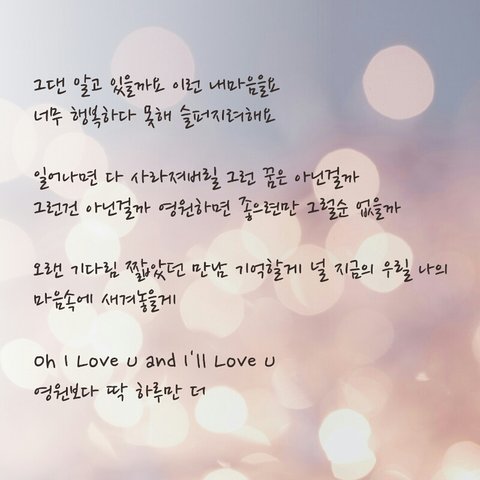 그댄 알고 있을까요 이런 내마음을요
너무 행복하다 못해 슬퍼지려해요
일어나면 다 사라져버릴 그런 꿈은 아닌걸까
그런건 아닌걸까 영원하면 좋으련만 그럴순 없을까
오랜 기다림 짧았던 만남 기억할게 널 지금의 우릴 나의
마음속에 새겨놓을게
Oh I Love u and I'll Love u
영원보다 딱 하루만 더